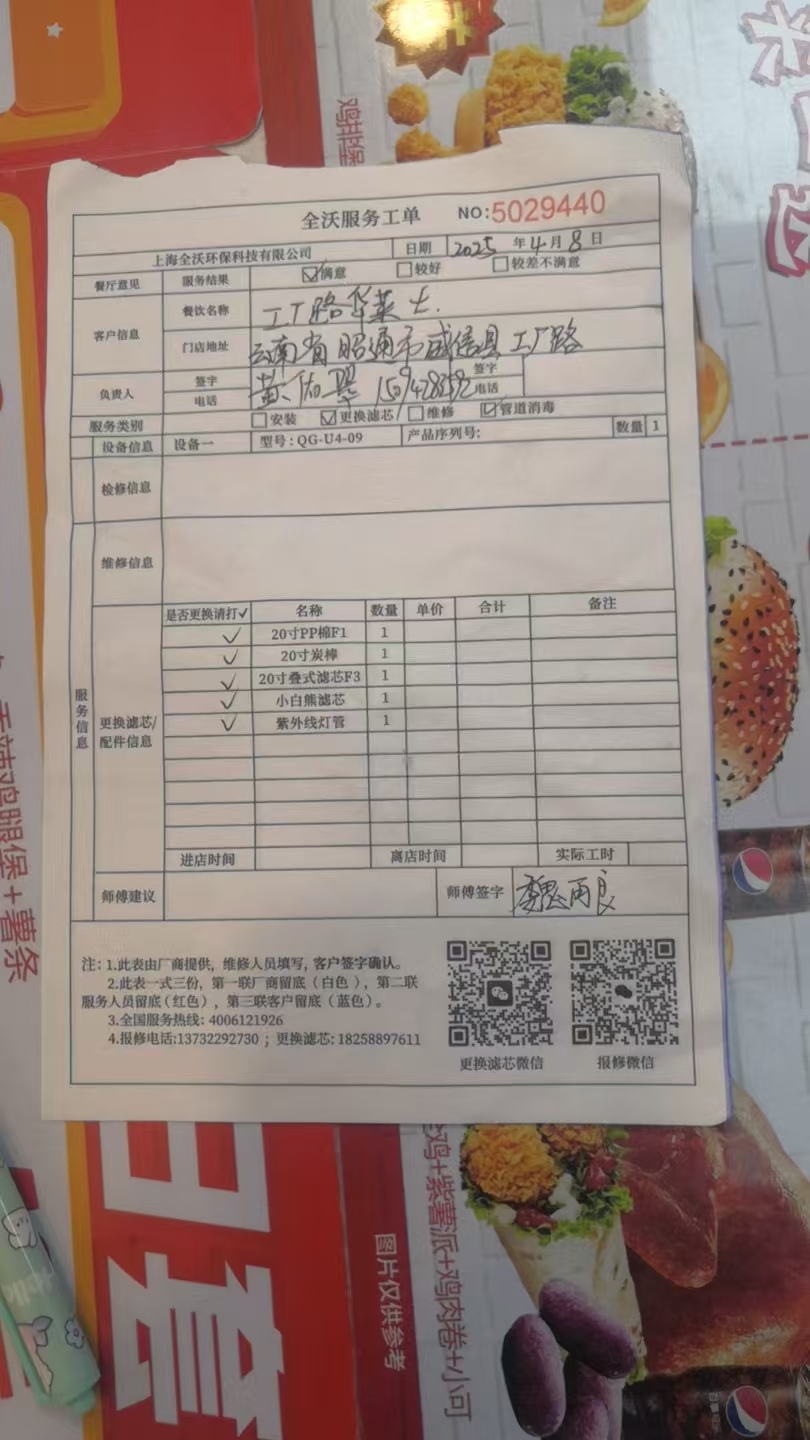 鸡排堡
全沃服务工单 NO:5029440
上海全沃环保科技有限公司 日期 2025 年 4 月 8 日
餐厅意见 服务结果 ☑满意 □较好 □较差不满意
客户信息 餐饮名称 工厂路华莱士.
门店地址 云南省昭通市威信县工厂路
负责人 签字 电话 黄 签字 电话
服务类别 □安装 ☑更换滤芯 □维修 ☑管道消毒
设备信息 设备一 型号:QG-U4-09 产品序列号: 数量 1
检修信息
维修信息
服务信息
更换滤芯/配件信息
是否更换请打✓ 名称 数量 单价 合计 备注
✓ 20寸PP棉F1 1
✓ 20寸炭棒 1
✓ 20寸叠式滤芯F3 1
✓ 小白熊滤芯 1
✓ 紫外线灯管 1
进店时间 离店时间 实际工时
师傅建议 师傅签字 魏雨良
注: 1.此表由厂商提供, 维修人员填写, 客户签字确认。
2.此表一式三份, 第一联厂商留底(白色), 第二联
服务人员留底(红色), 第三联客户留底(蓝色)。
3.全国服务热线: 4006121926
4.报修电话:13732292730 ; 更换滤芯: 18258897611
更换滤芯微信 报修微信
鸡腿堡+薯条
鸡+紫薯派+鸡肉卷+小可
图片仅供参考